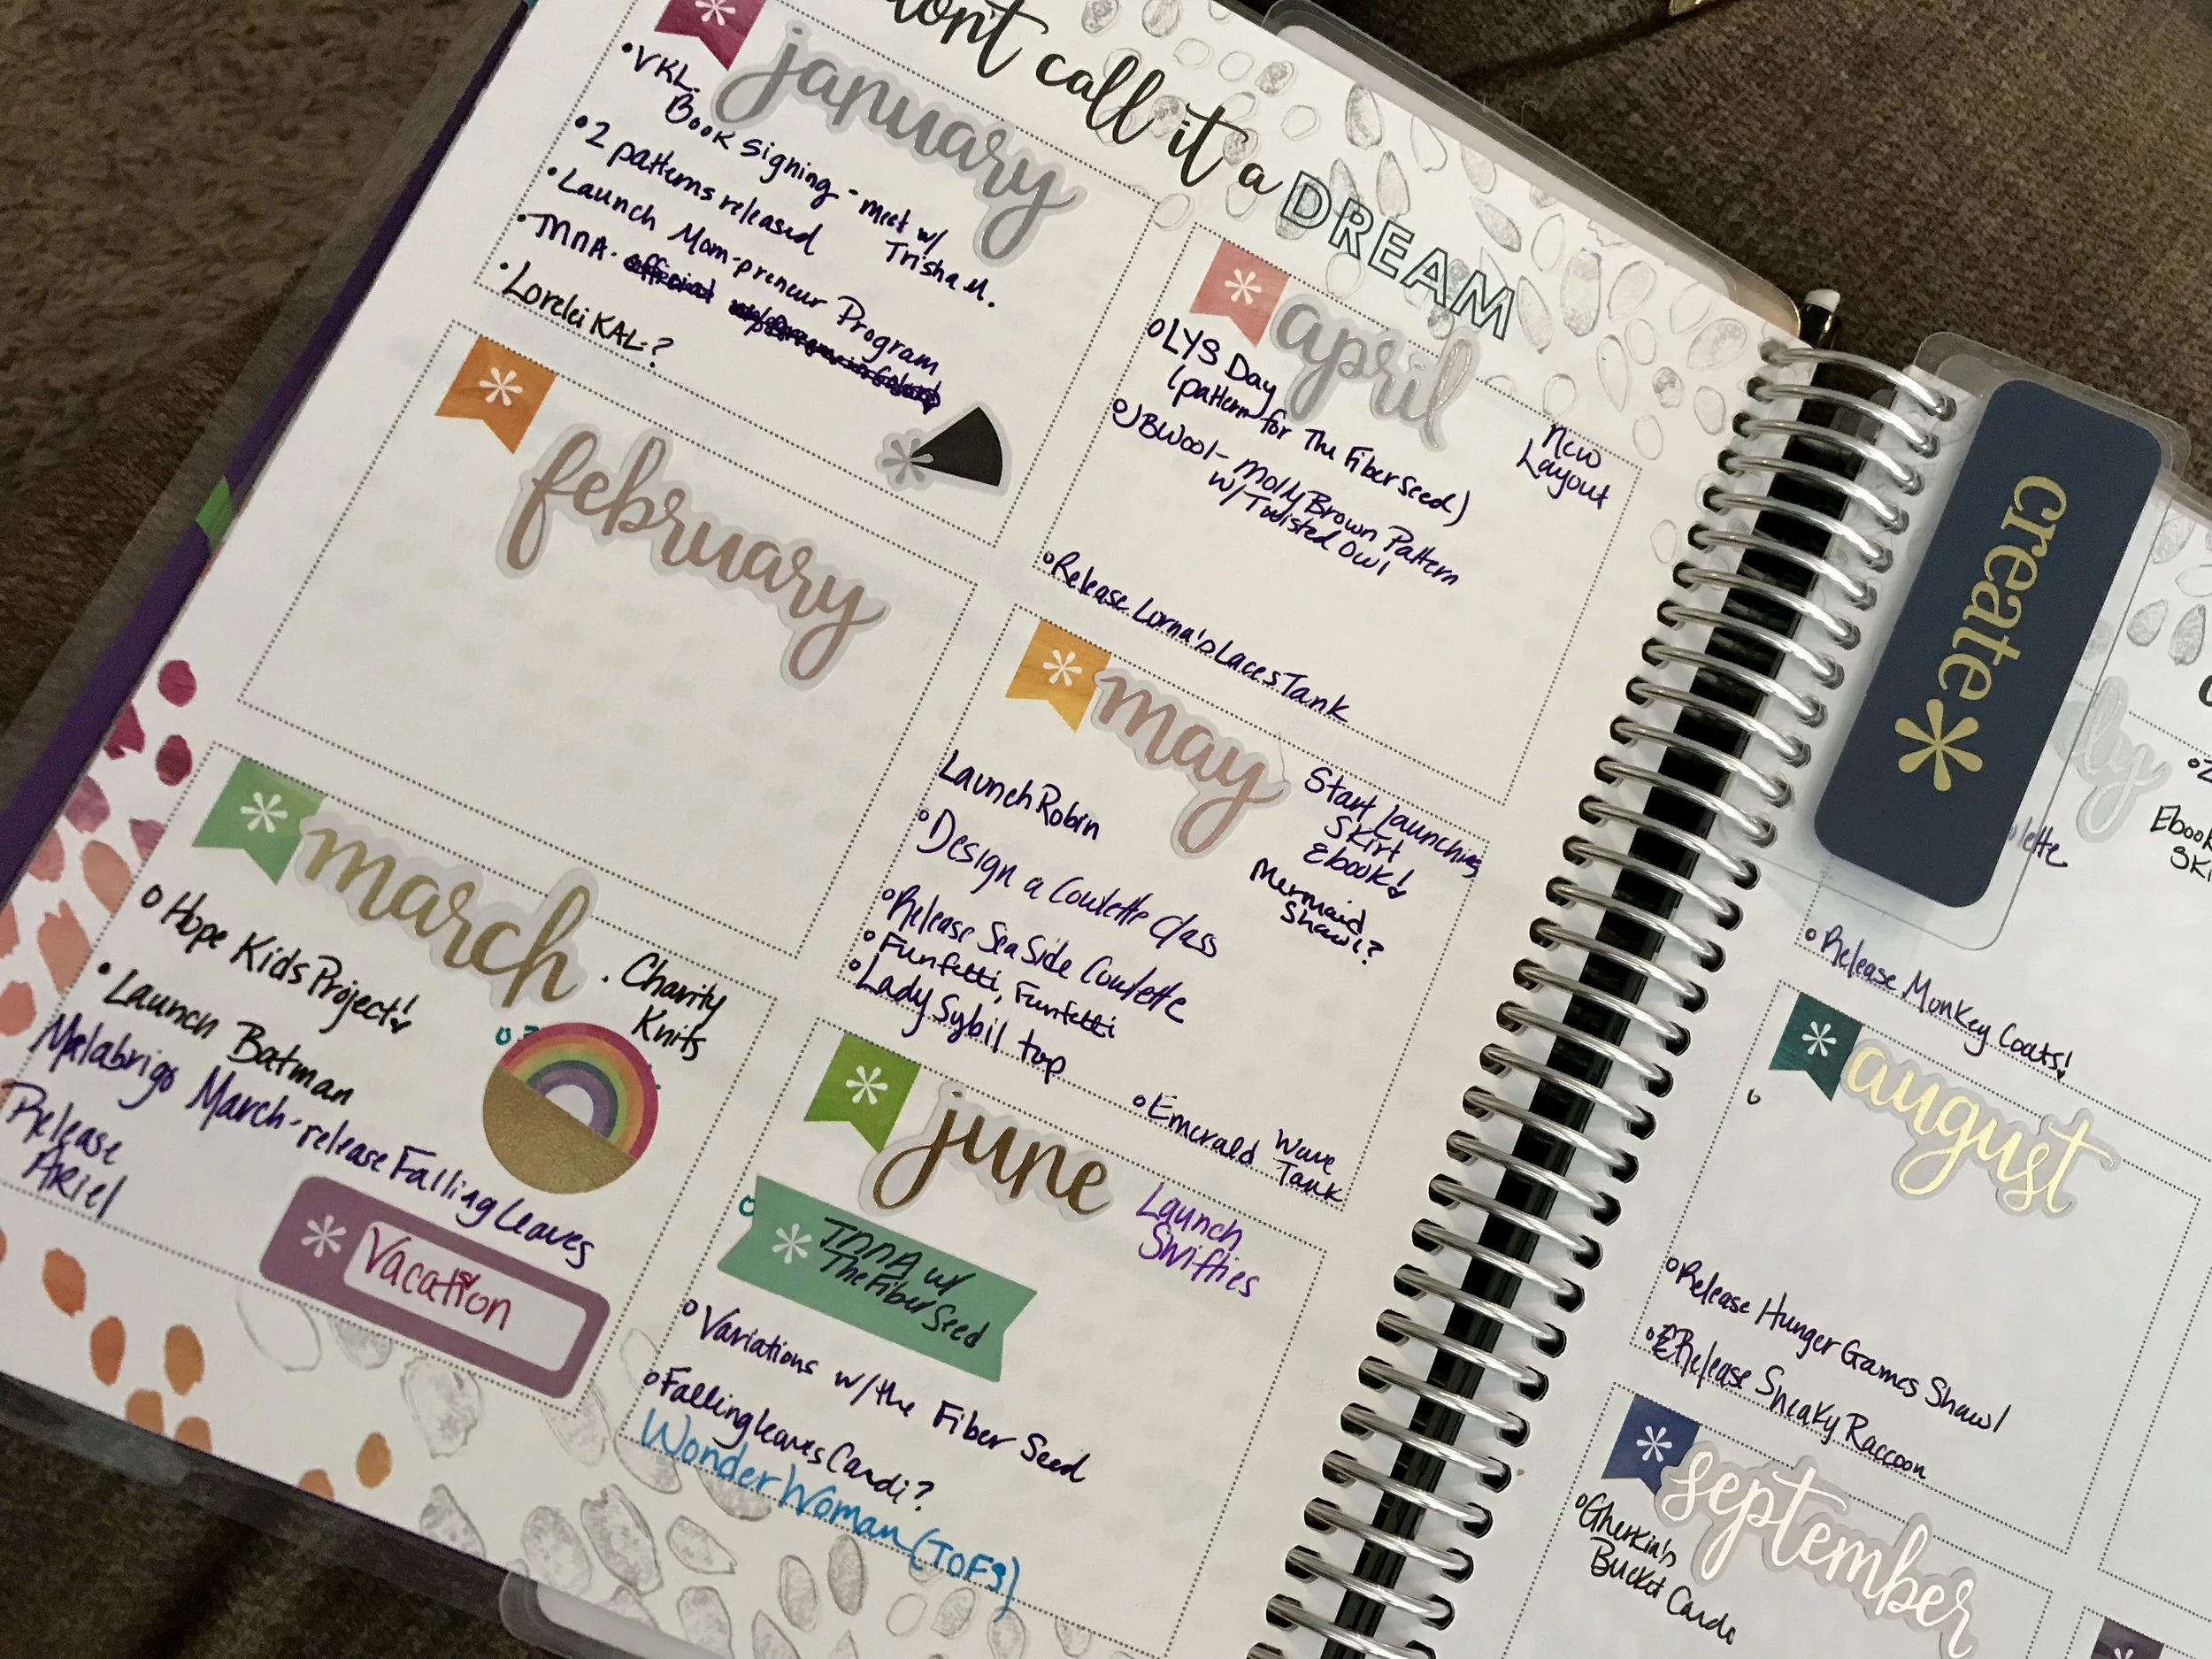 call it a DREAM
january
• VKL.
Book signing - meet w/
Trisha M.
• 2 patterns released
• Launch Mom-preneur Program
• TNNA.
• Lorelei KAL?
february
march
Hope Kids Project!
• Charity
Knits
• Launch Batman
Malabrigo March - release Falling Leaves
Release
Ariel
Vacation
april
LYS Day
(pattern for The Fiber Seed)
New
Layout
JBWool - Molly Brown Pattern
w/ Twisted Owl
Release Lorna's Laces Tank
may
Launch Robin
Start launching
Skirt
Ebook!
Mermaid
Shawl?
Design a Coulette Class
Release SeaSide Coulette
Funfetti, Funfetti
Lady Sybil top
Emerald Wave
Tank
june
Launch
Swifties
TNNA w/
The Fiber Seed
Variations w/ the Fiber Seed
Falling leaves Cardi?
Wonder Woman (TOFS)
create*
Release Monkey Coats!
august
Release Hunger Games Shawl
Release Sneaky Raccoon
september
Gherkin's
Bucket Cardi